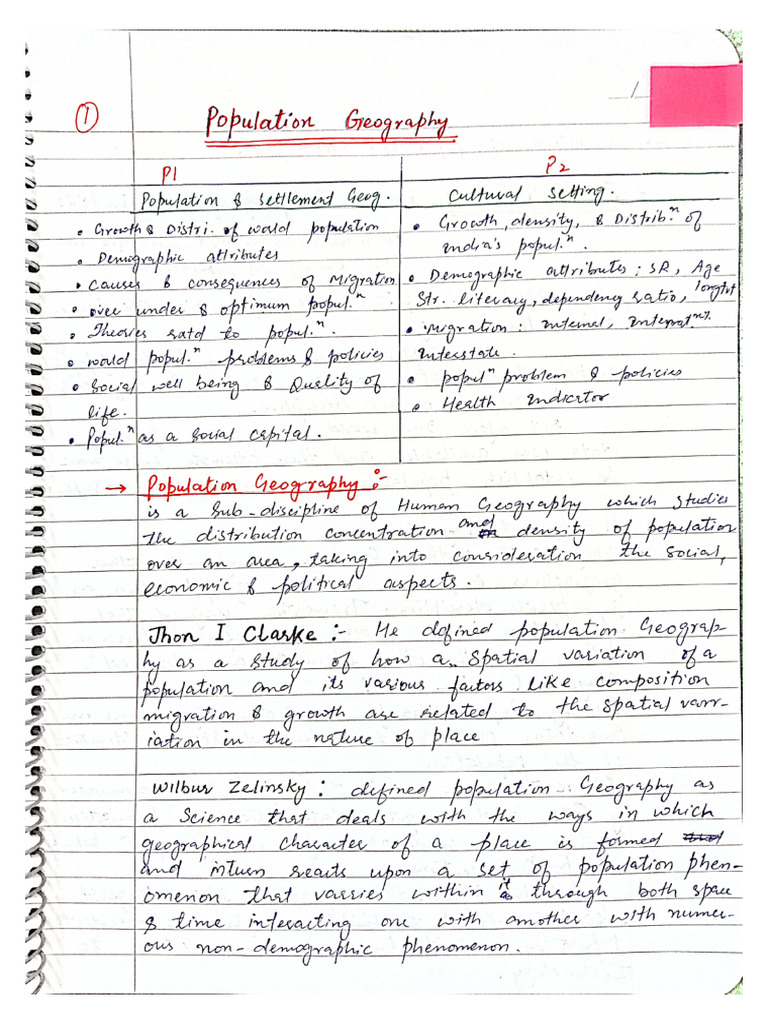 1
① Population Geography
P1
Population & settlement Geog.
• Growth & Distri. of world population
• Demographic attributes
• causes & consequences of Migration
• over under & optimum popul.ⁿ
• Theories ratd to popul.ⁿ.
• world popul.ⁿ problems & policies
• Social well being & Quality of
life.
• Popul.ⁿ as a social capital.
P2
Cultural Setting.
• Growth, density, & Distrib.ⁿ of
India's popul.ⁿ.
• Demographic attributes: SR, Age
Str. literacy, dependency ratio,
• Migration: Internal,
Interstate.
• populⁿ problem & policies
• Health Indicator
→ Population Geography :-
is a Sub-discipline of Human Geography which studies
the distribution concentration and density of population
over an area, taking into consideration the social,
economic & political aspects.
Jhon I Clarke :- He defined population Geograp-
hy as a study of how a spatial variation of a
population and its various factors like composition
migration & growth are related to the spatial varr-
iation in the nature of place
Wilbur Zelinsky : defined population Geography as
a Science that deals with the ways in which
geographical character of a place is formed
and inturn reacts upon a set of population phen-
omenon that varries within it through both space
& time interacting one with another with numer-
ous non-demographic phenomenon.